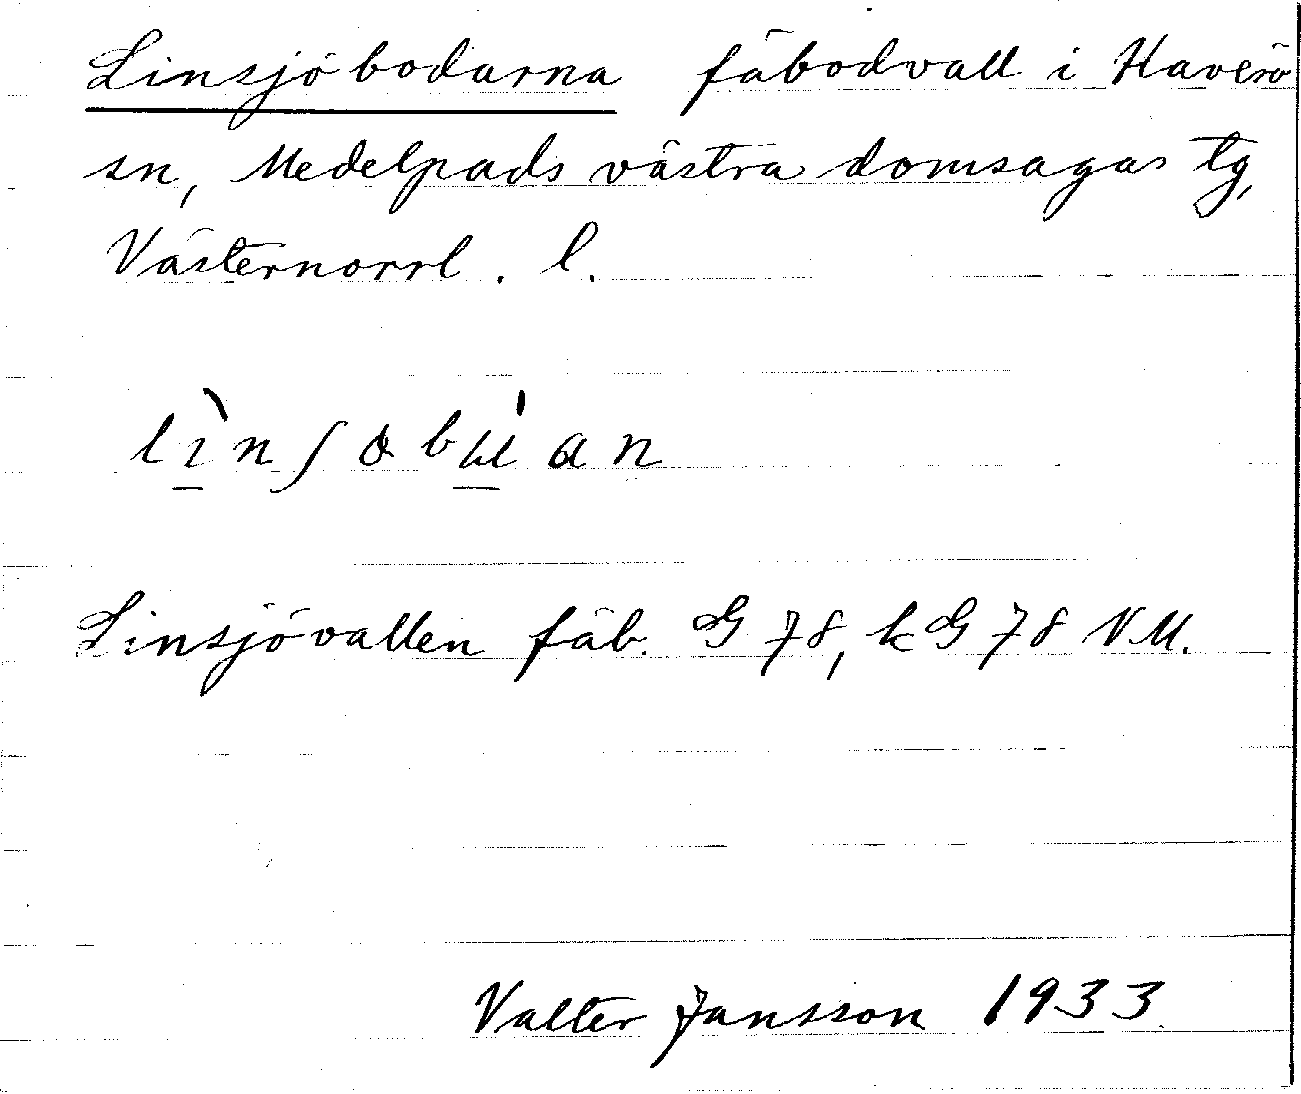 Linsjöbodarna fäbodvall i Haverö
sn, Medelpads västra domsagas tg,
Västernorrl. l.
lìnʃobu̍an
Linsjövallen fäb. G 78, kG 78 NV.
Valter Jansson 1933